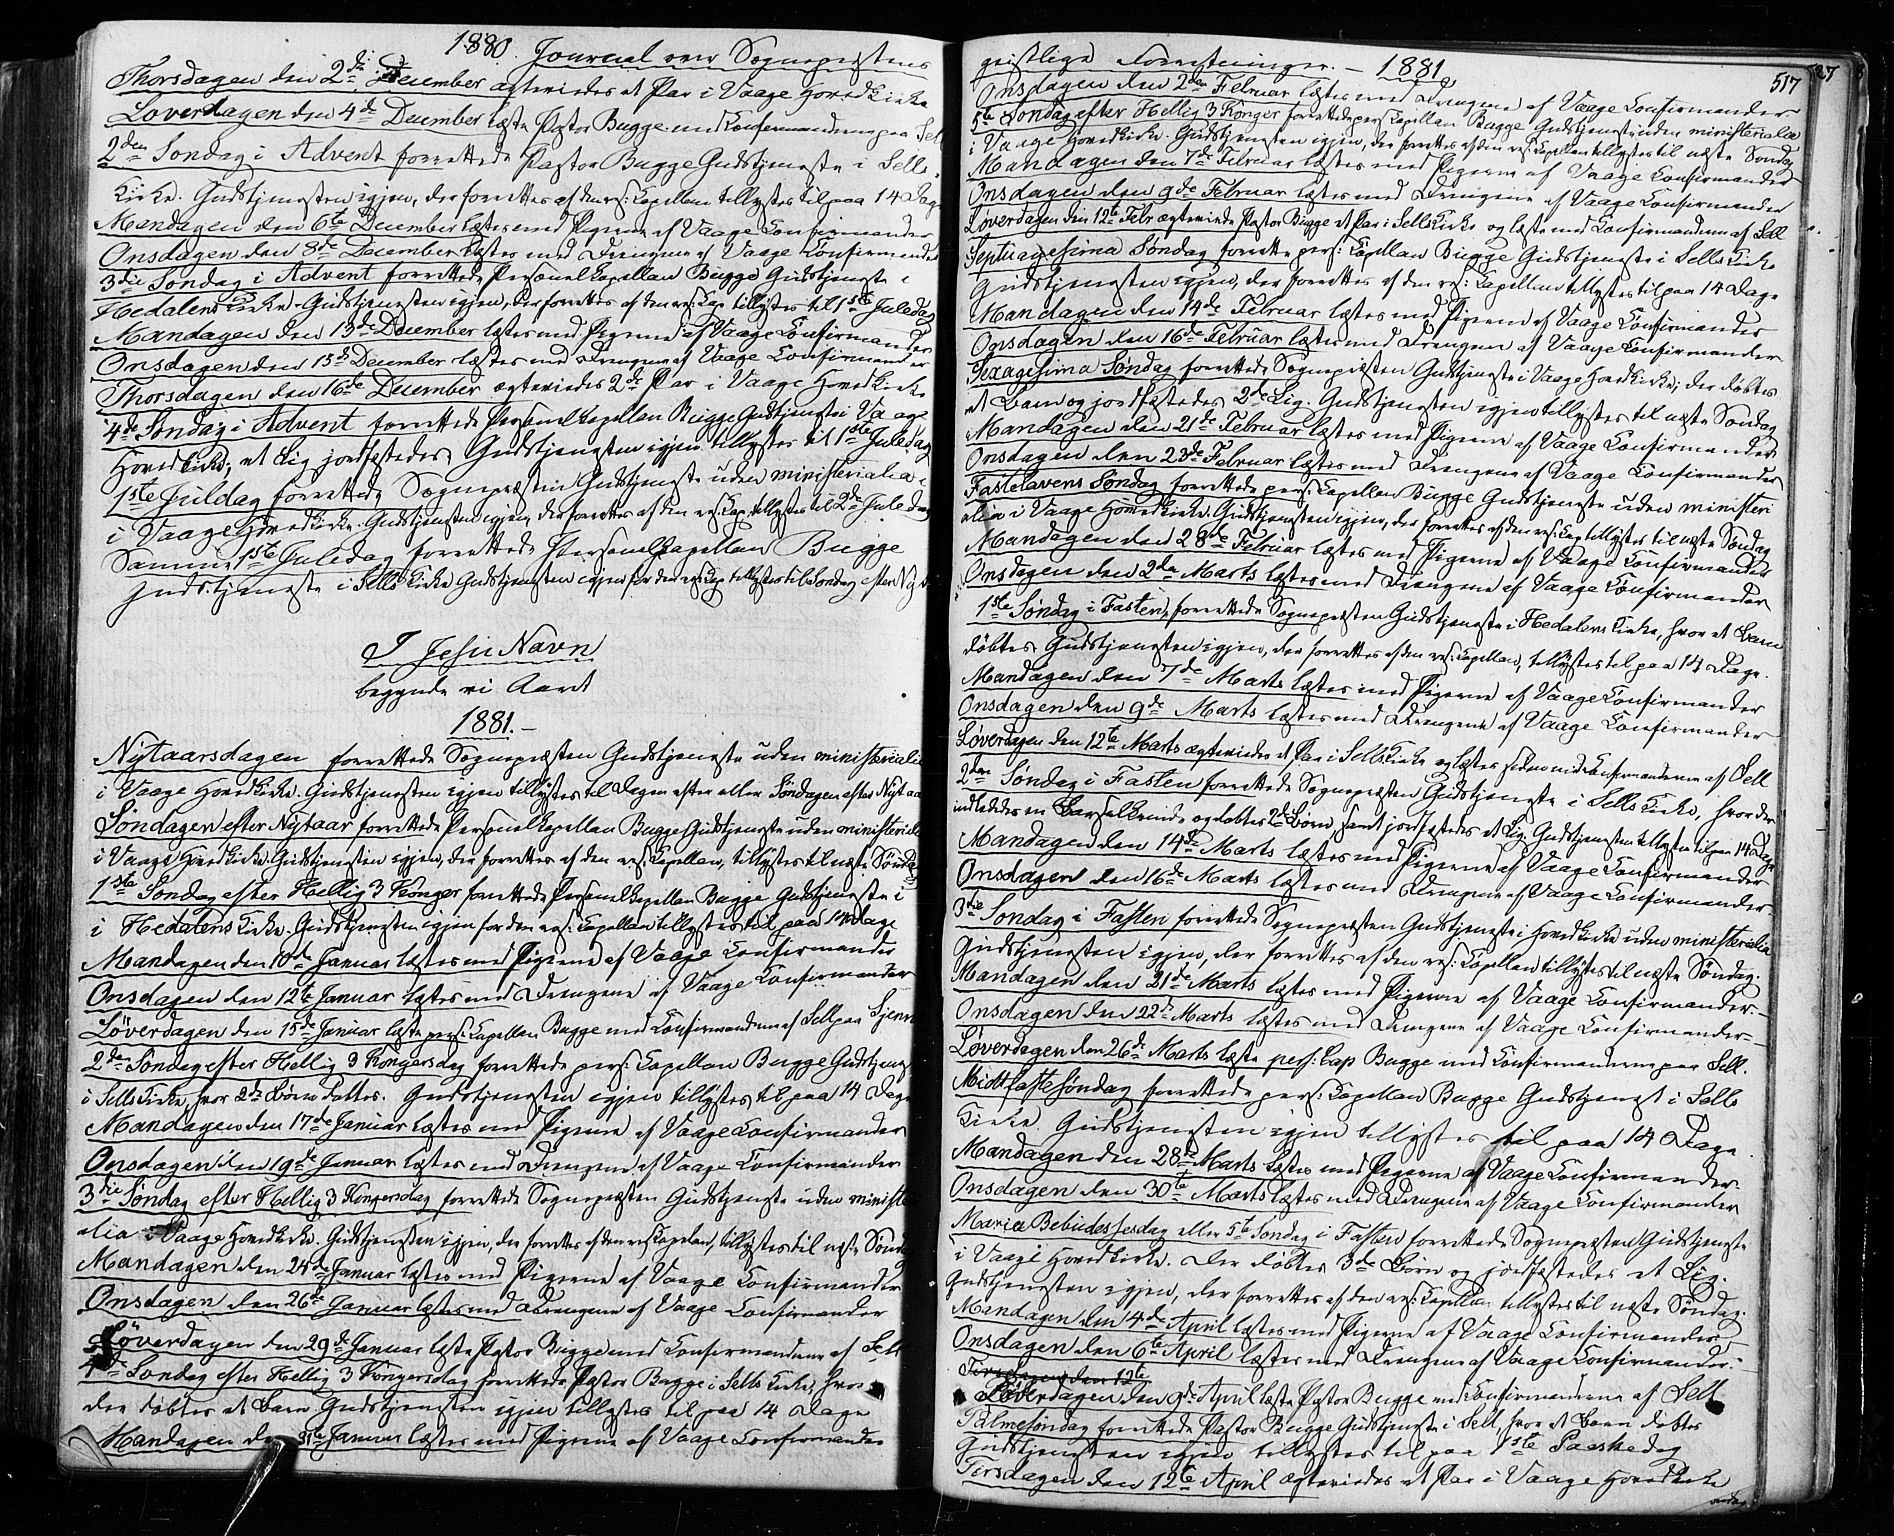 1880. Journal over Sognepræstens
Thorsdagen den 2de December ægteviedes et Par i Vaage Hovedkirke
Løverdagen den 4de December læste Pastor Bugge med Confirmanderne paa Sell
2den Søndag i Advent forrettede Pastor Bugge Gudstjeneste i Sells
Kirke. Gudstjenesten igjen, der forrettes af den res: Kapellan tillystes til paa 14 Dage
Mandagen den 6te December læstes med Pigerne af Vaage Confirmander
Onsdagen den 8de December læstes med Drengene af Vaage Confirmander
3die Søndag i Advent forrettede Personelkapellan Bugge Gudstjeneste i
Hedalens Kirke. Gudstjenesten igjen, der forrettes af den res: Cap tillystes til 1ste Juledag
Mandagen den 13de December læstes med Pigerne af Vaage Confirmander
Onsdagen den 15de December læstes med Drengene af Vaage Confirmander
Thorsdagen den 16de December ægteviedes 2de Par i Vaage Hovedkirke
4de Søndag i Advent forrettede Personelkapellan Bugge Gudstjeneste i Vaage
Hovedkirke, et Lig jordfæstedes Gudstjenesten igjen tillystes til 1ste Juledag
1ste Juledag forrettede Sognepræsten Gudstjeneste uden ministerialia
i Vaage Hovedkirke. Gudstjenesten igjen, der forrettes af den res: Cap. tillystes til 2de Juledag
Samme 1ste Juledag forrettede Personelkapellan Bugge
Gudstjeneste i Sells Kirke Gudstjenesten igjen for den res: Cap tillystes til Søndag efter Nytaar
I Jesu Navn
begynde vi Aaret
1881.-
Nytaarsdagen forrettede Sognepræsten Gudstjeneste uden ministerialia
i Vaage Hovedkirke. Gudstjenesten igjen tillystes til Dagen efter eller Søndagen efter Nytaar
Søndagen efter Nytaar forrettede Personelkapellan Bugge Gudstjeneste uden ministerialia
i Vaage Hovedkirke. Gudstjenesten igjen, der forrettes af den res: Kapellan, tillystes til næste Søndag
1ste Søndag efter Hellig 3 Konger forrettede Personelkapellan Bugge Gudstjeneste i
i Hedalens Kirke. Gudstjenesten igjen for den res: Capellan tillystes til paa 14 Dage
Mandagen den 10de Januar læstes med Pigerne af Vaage Confirmander
Onsdagen den 12te Januar læstes med Drengene af Vaage Confirmander
Løverdagen den 15de Januar læste pers: Kapellan Bugge med Confirmanderne af Sell paa
2den Søndag efter Hellig 3 Kongersdag forrettede pers: Kapellan Bugge Gudstjeneste
i Sells Kirke, hvor 2de Børn døbtes. Gudstjenesten igjen tillystes til paa 14 Dage
Mandagen den 17de Januar læstes med Pigerne af Vaage Confirmander
Onsdagen den 19de Januar læstes med Drengene af Vaage Confirmander
3die Søndag efter Hellig 3 Kongersdag forrettede Sognepræsten Gudstjeneste uden ministeri
alia i Vaage Hovedkirke. Gudstjenesten igjen, der forrettes af den res Kapellan, tillystes til næste Søndag
Mandagen den 24de Januar læstes med Pigerne af Vaage Confirmander
Onsdagen den 26de Januar læstes med Drengene af Vaage Confirmander
Løverdagen den 29de Januar læste Pastor Bugge med Confirmanderne af Sell
4de Søndag efter Hellig 3 Kongersdag forrettede Pastor Bugge i Sells Kirke, hvor
der døbtes et Barn. Gudstjenesten igjen tillystes til paa 14 Dage
Mandagen den 31te Januar læstes med Pigerne af Vaage Confirmander
geistlige Forretninger. - 1881
517
27
Onsdagen den 2den Februar læstes med Drengene af Vaage Confirmander
5te Søndag efter Hellig 3 Konger forrettede pers: Capellan Bugge Gudstjeneste uden ministerialia
i Vaage Hovedkirke. Gudstjenesten igjen, der forrettes af den res: Capellan tillystes til næste Søndag
Mandagen den 7de Februar læstes med Pigerne af Vaage Confirmander
Onsdagen den 9de Februar læstes med Drengene af Vaage Confirmander
Løverdagen den 12te Febr ægteviede Pastor Bugge et Par i Sells Kirke og læste med Confirmanderne af Sell
Septuagesima Søndag forrettede pers: Kapellan Bugge Gudstjeneste i Sells Kirke
Gudstjenesten igjen, der forrettes af den res: Capellan tillystes til paa 14 Dage
Mandagen den 14de Februar læstes med Pigerne af Vaage Confirmander
Onsdagen den 16de Februar læstes med Drengene af Vaage Confirmander
Sexagesima Søndag forrettede Sognepræsten Gudstjeneste i Vaage Hovedkirke; der døbtes
et Barn og jordfæstedes 2de Lig. Gudstjenesten igjen tillystes til næste Søndag
Mandagen den 21de Februar læstes med Pigerne af Vaage Confirmander
Onsdagen den 23de Februar læstes med Drengene af Vaage Confirmander
Fastelavens Søndag forrettede pers: Kapellan Bugge Gudstjeneste uden ministeri
alia i Vaage Hovedkirke. Gudstjenesten igjen, der forrettes af den res: Cap tillystes til næste Søndag
Mandagen den 28de Februar læstes med Pigerne af Vaage Confirmander
Onsdagen den 2den Marts læstes med Drengene af Vaage Confirmander
1ste Søndag i Fasten, forrettede Sognepræsten Gudstjeneste i Hedalens Kirke, hvor et Barn
døbtes. Gudstjenesten igjen, der forrettes af den res: Capellan, tillystes til paa 14 Dage.
Mandagen den 7de Marts læstes med Pigerne af Vaage Confirmander
Onsdagen den 9de Marts læstes med Drengene af Vaage Confirmander
Løverdagen den 12te Marts ægteviedes et Par i Sells Kirke og læstes siden med Confirmanderne af Sell
2den Søndag i Fasten forrettede Sognepræsten Gudstjeneste i Sells Kirke, hvor der
indlededes en Barselkvinde og døbtes 2de Børn, samt jordfæstedes et Lig. Gudstjenesten tillystes til paa 14 Dage
Mandagen den 14de Marts læstes med Pigerne af Vaage Confirmander
Onsdagen den 16de Marts læstes med Drengene af Vaage Confirmander.
3die Søndag i Fasten forrettede Sognepræsten Gudstjeneste i Hovedkirke uden ministerialia
Gudstjenesten igjen, der forrettes af den res: Capellan tillystes til næste Søndag.
Mandagen den 21de Marts læstes med Pigerne af Vaage Confirmander.-
Onsdagen den 22de Marts læstes med Drengene af Vaage Confirmander.-
Løverdagen den 26de Marts læste pers: Cap Bugge med Confirmanderne paa Sell.
Midtfastesøndag forrettede pers: Kapellan Bugge Gudstjenest i Sells
Kirke. Gudstjenesten igjen tillystes til paa 14 Dage
Mandagen den 28de Marts læstes med Pigerne af Vaage Confirmander.
Onsdagen den 30te Marts læstes med Drengene af Vaage Confirmander
Mariæ Bebudelsesdag eller 5te Søndag i Fasten forrettede Sognepræsten Gudstjeneste
i Vaage Hovedkirke. Der døbtes 3de Børn og jordfæstedes et Lig.
Gudstjenesten igjen, der forrettes af den res: Capellan tillystes til næste Søndag.
Mandagen den 4de April læstes med Pigerne af Vaage Confirmander
Onsdagen den 6te April læstes med Drengene af Vaage Confirmander.-
Tirsdagen den 12te
Løverdagen den 9de April læste Pastor Bugge med Confirmanderne af Sell
Palmesøndag forrettede Pastor Bugge Gudstjeneste i Sell, hvor et Barn døbtes
Gudstjenesten igjen tillystes til paa 1ste Paaskedag
Tirsdagen den 12te April ægteviedes et Par i Vaage Hovedkirke